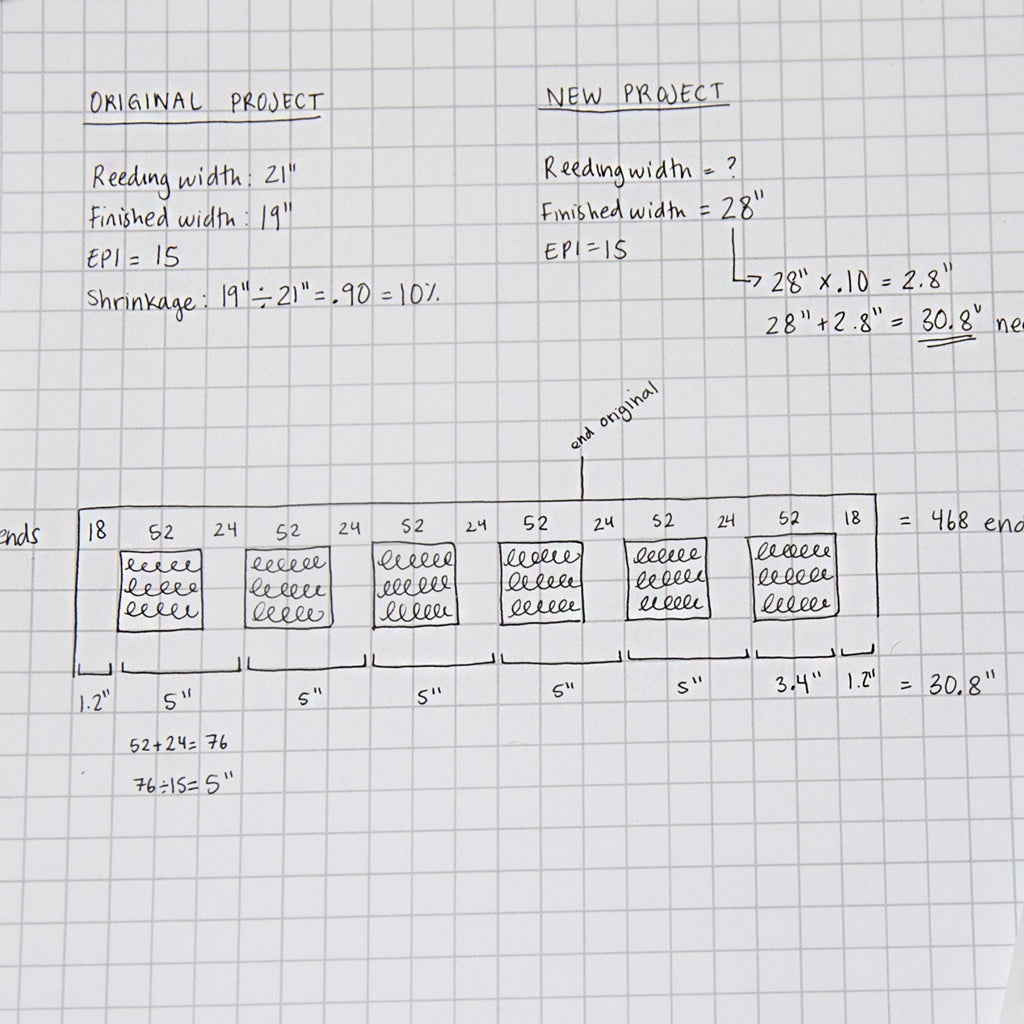 ORIGINAL PROJECT
Reeding width: 21"
Finished width: 19"
EPI = 15
Shrinkage: 19" ÷ 21" = .90 = 10%
NEW PROJECT
Reeding width = ?
Finished width = 28"
EPI = 15
28" x .10 = 2.8"
28" + 2.8" = 30.8"
end original
ends 18 52 24 52 24 52 24 52 24 52 24 52 18 = 468 end
1.2" 5" 5" 5" 5" 5" 3.4" 1.2" = 30.8"
52+24= 76
76÷15= 5"